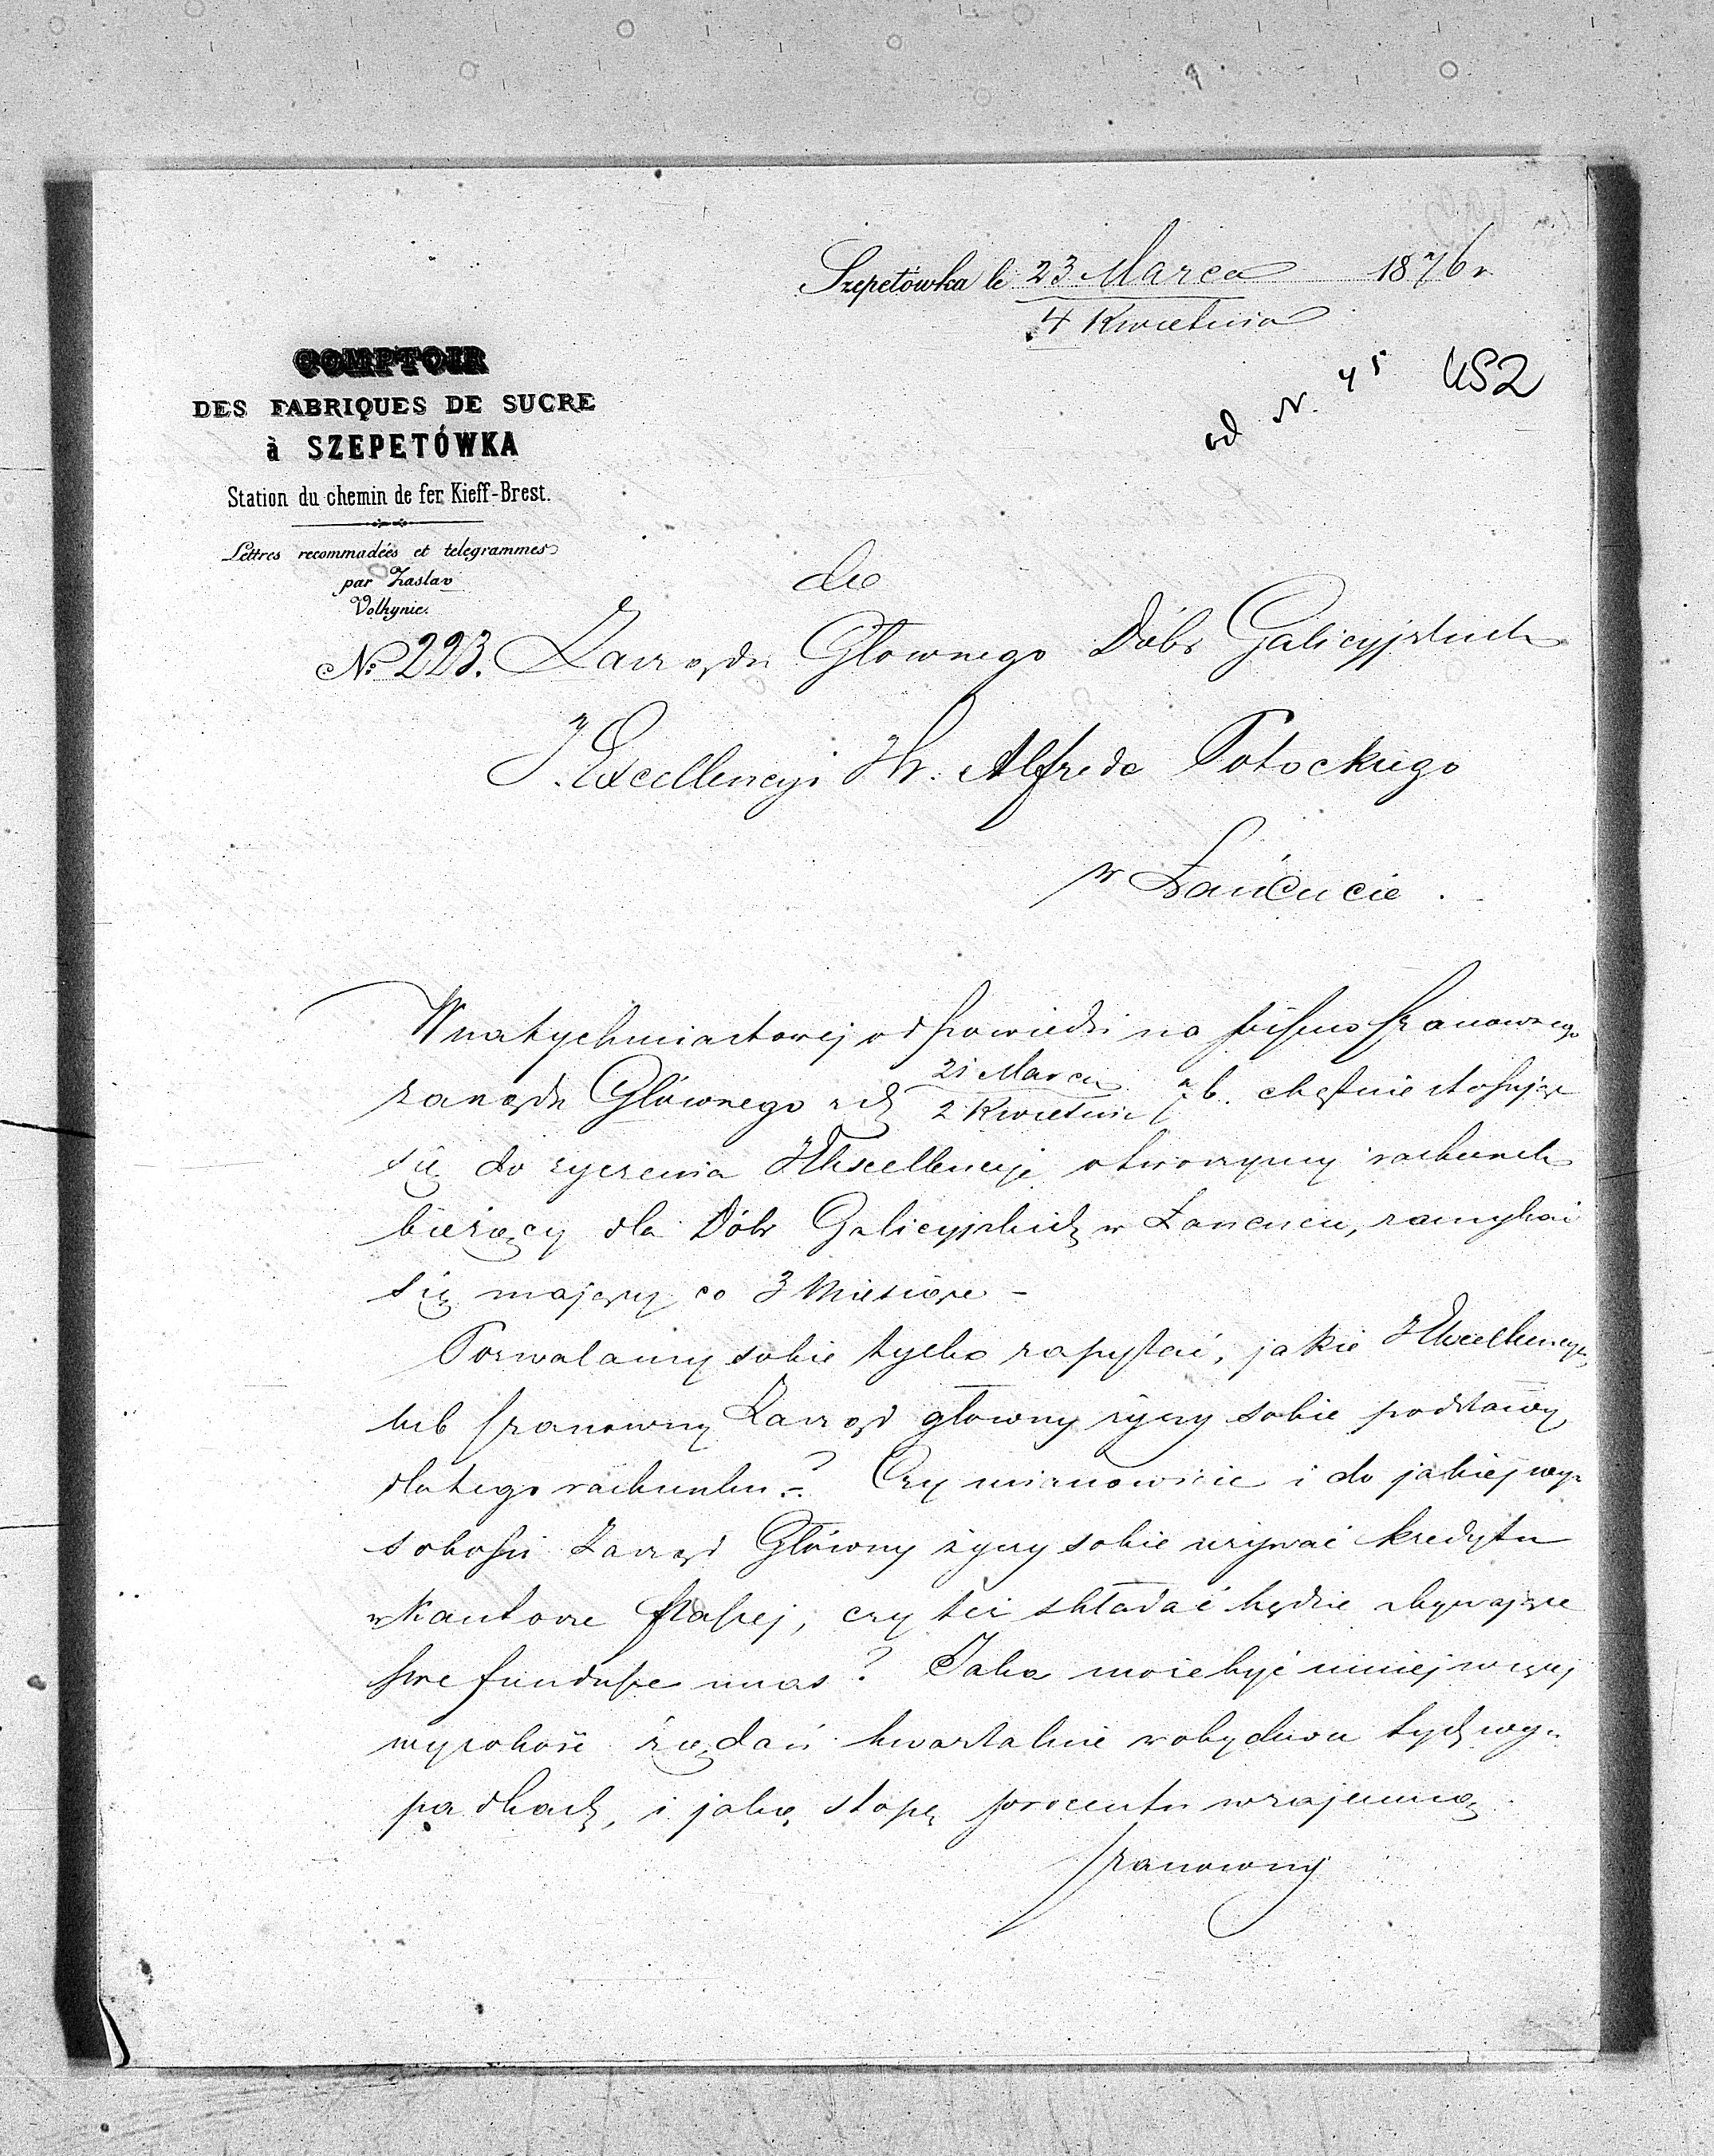 Szepetówka le 23 Marca 1876 r
4 Kwietnia
od N. 45 452
COMPTOIR
DES FABRIQUES DE SUCRE
à SZEPETÓWKA
Station du chemin de fer Kieff-Brest.
Lettres recommadées et telegrammes
par Zaslav
Volhynie.
do
№ 223. Zarządu Głownego Dóbr Galicyjskich
J. Excellencyi Hr. Alfreda Potockiego
w Łańcucie.
W natychmiastowej odpowiedzi na pismo szanownego
zarządu Głównego z d. 21 Marca
2 Kwietnia r. b. chętnie stosując
się do życzenia JExcellencyi otworzymy rachunek
bieżący dla Dóbr Galicyjskich w Łancucu, zamykać
się mający co 3 Miesiące -
Pozwalamy sobie tylko zapytać, jakie JExcellencya
lub szanowny Zarząd głowny życzy sobie podstawy
dla tego rachunku? Czy mianowicie i do jakiej wy-
sokości Zarząd Główny życzy sobie używać kredytu
w Kantorze naszej, czy też składać będzie zbywające
swe fundusze u nas? Jaka może być mniej więcej
wysokość żądań kwartalnie w obydwu tych wy-
padkach, i jaką stopę procentu wzajemną
szanowny